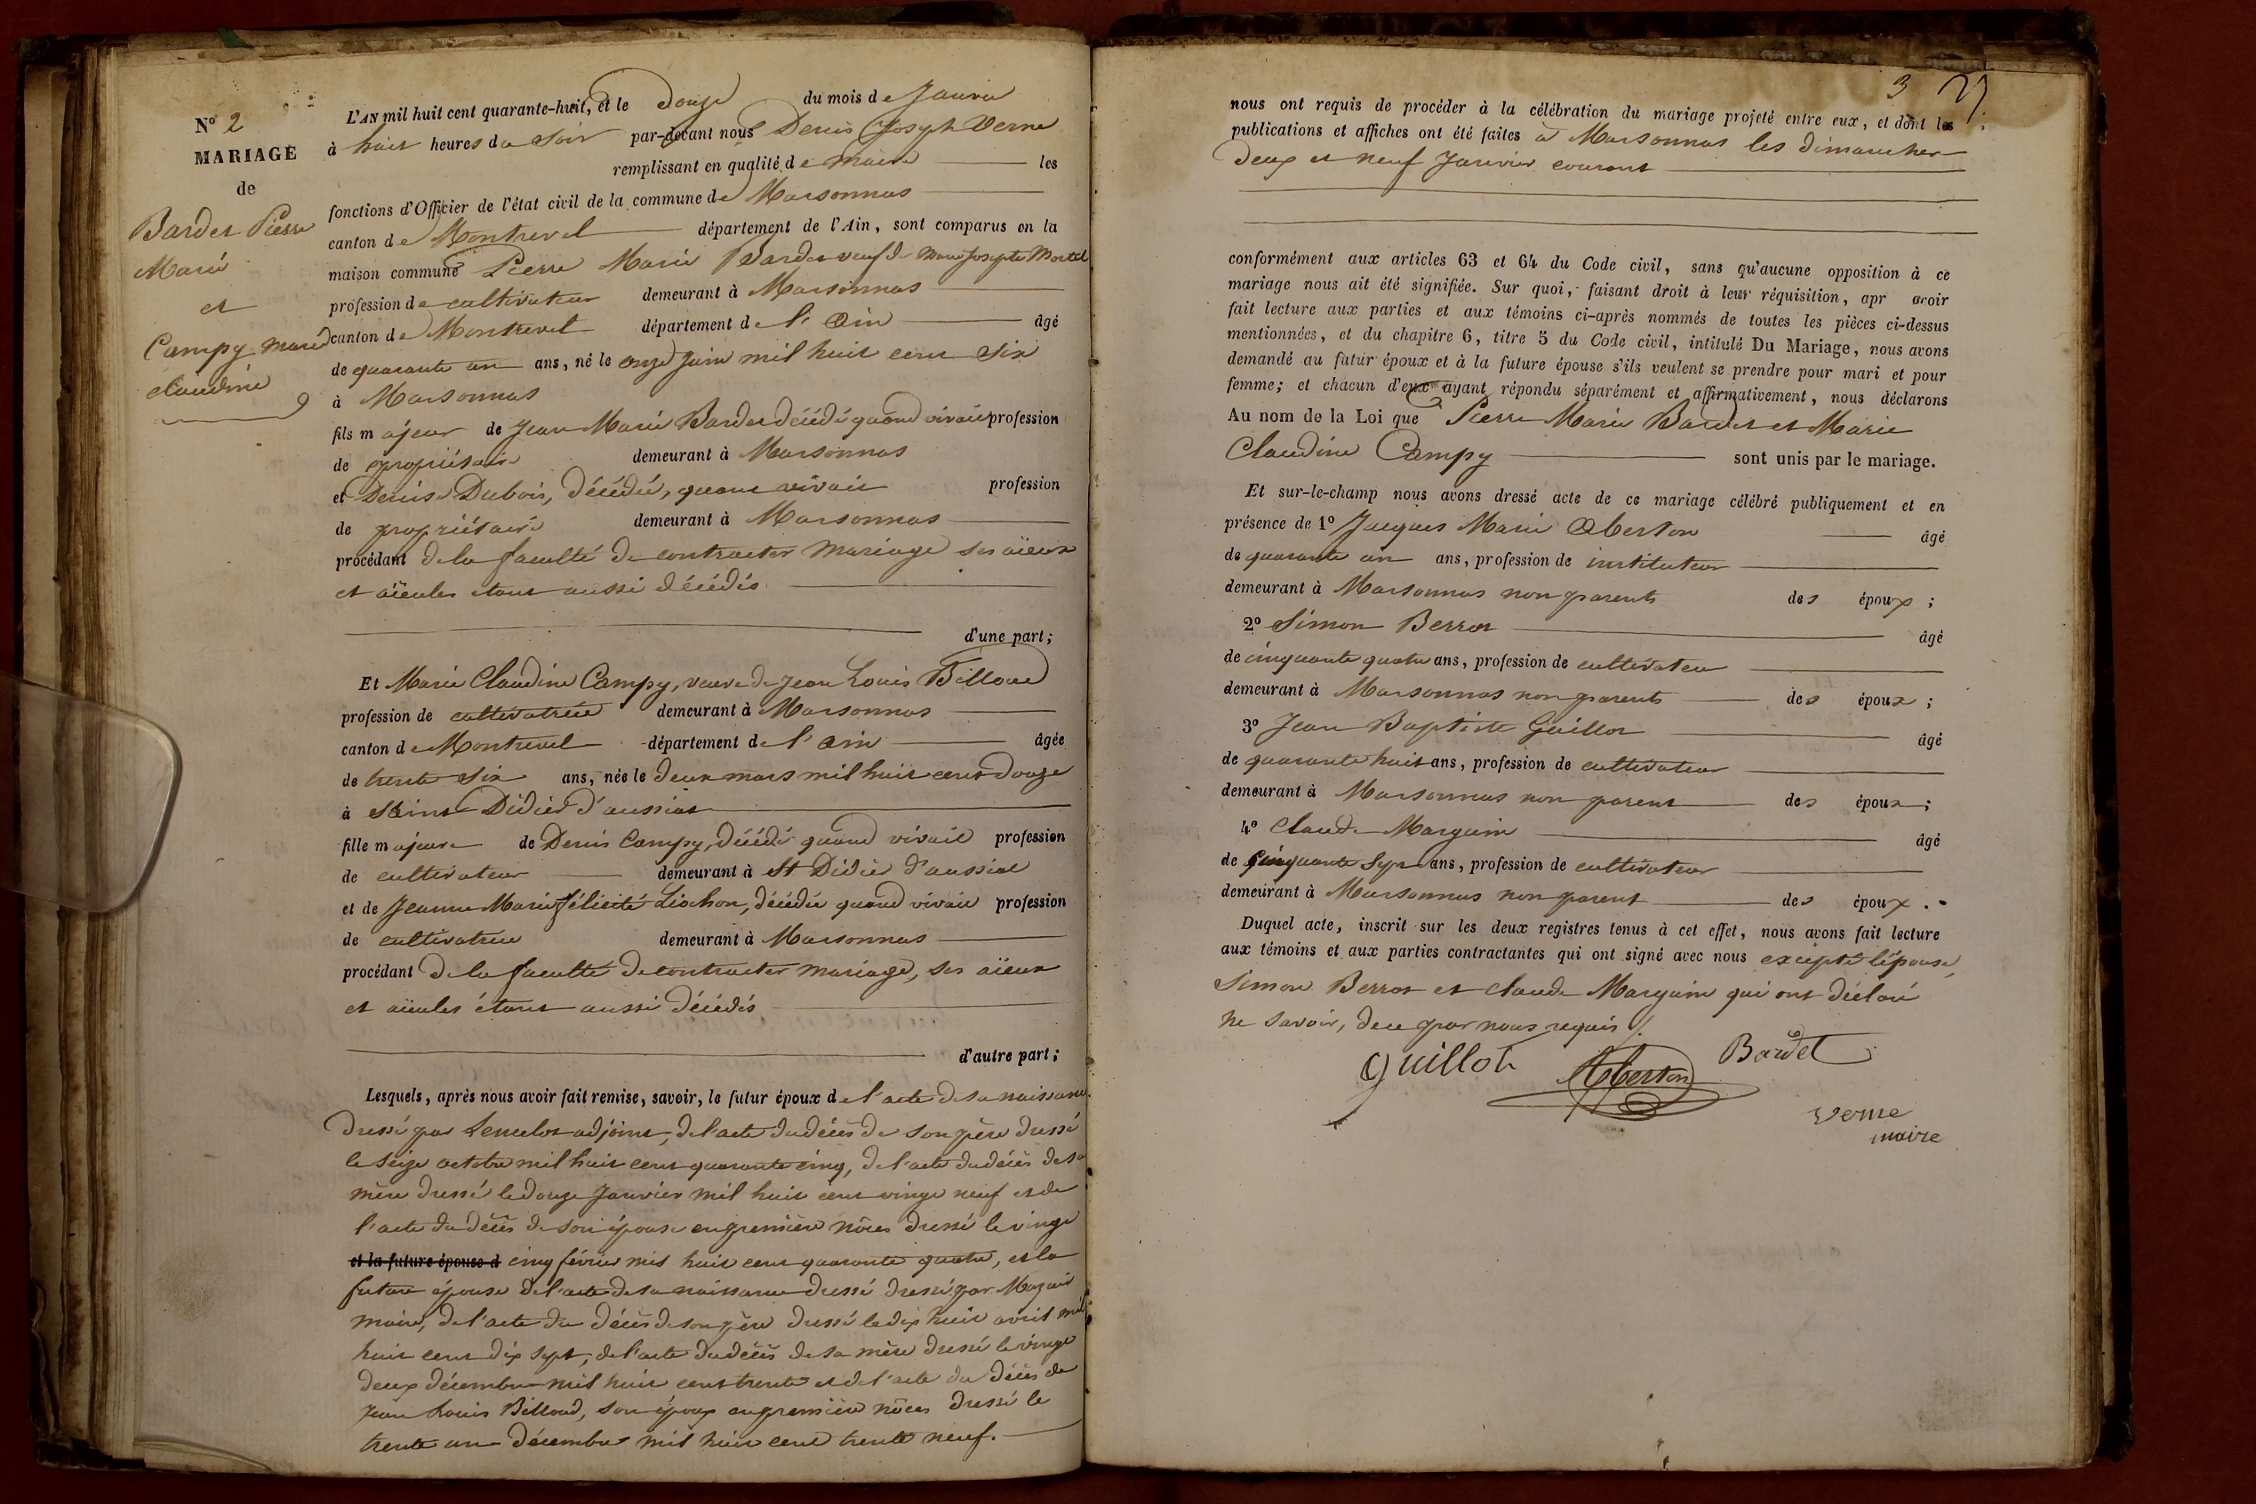 N° 2
MARIAGE
de
Bardet Pierre
Marie
et
Campy marie
claudine
L'AN mil huit cent quarante-huit, et le douze du mois de Janvier
à huit heures du soir par-devant nous Denis Joseph Verne
remplissant en qualité de maire les
fonctions d'Officier de l'état civil de la commune de Marsonnas
canton de Montrevel département de l'Ain, sont comparus en la
maison commune Pierre Marie Bardet veuf de Marie Josephte Mortel
profession de cultivateur demeurant à Marsonnas
canton de Montrevel département de l'Ain âgé
de quarante un ans, né le onze Juin mil huit cent six
à Marsonnas
fils majeur de Jean Marie Bardet décédé quand vivait profession
de propriétaire demeurant à Marsonnas
et Denise Dubois, décédée, quand vivait profession
de propriétaire demeurant à Marsonnas
procédant de la faculté de contracter mariage ses aïeux
et aïeules étant aussi décédés
d'une part;
Et Marie Claudine Campy, veuve de Jean Louis Billoud
profession de cultivatrice demeurant à Marsonnas
canton de Montrevel département de l'Ain âgée
de trente six ans, née le deux mars mil huit cent douze
à Saint Didier d'aussiat
fille majeure de Denis Campy, décédé quand vivait profession
de cultivateur demeurant à St Didier d'aussiat
et de Jeanne Marie félicité Liochon, décédée quand vivait profession
de cultivatrice demeurant à Marsonnas
procédant de la faculté de contracter mariage, ses aïeux
et aïeules étant aussi décédés
d'autre part;
Lesquels, après nous avoir fait remise, savoir, le futur époux de l'acte de sa naissance
dressé par Lencelot adjoint, de l'acte du décès de son père dressé
le seize octobre mil huit cent quarante cinq, de l'acte du décès de sa
mère dressé le douze Janvier mil huit cent vingt neuf et de
l'acte du décès de son épouse en première nôces dressé le vingt
et la future épouse d cinq février mil huit cent quarante quatre, et la
future épouse de l'acte de sa naissance dressé dressé par Mazuir
maire, de l'acte du décès de son père dressé le dix huit avril mil
huit cent dix sept, de l'acte du décès de sa mère dressé le vingt
deux décembre mil huit cent trente et de l'acte du décès de
Jean Louis Billoud, son époux en première nôces dressé le
trente un décembre mil huit cent trente neuf.
3
nous ont requis de procéder à la célébration du mariage projeté entre eux, et dont les
publications et affiches ont été faites à Marsonnas les dimanches
deux et neuf Janvier courant
conformément aux articles 63 et 64 du Code civil, sans qu'aucune opposition à ce
mariage nous ait été signifiée. Sur quoi, faisant droit à leur réquisition, apr avoir
fait lecture aux parties et aux témoins ci-après nommés de toutes les pièces ci-dessus
mentionnées, et du chapitre 6, titre 5 du Code civil, intitulé Du Mariage, nous avons
demandé au futur époux et à la future épouse s'ils veulent se prendre pour mari et pour
femme; et chacun d'eux ayant répondu séparément et affirmativement, nous déclarons
Au nom de la Loi que Pierre Marie Bardet et Marie
Claudine Campy sont unis par le mariage.
Et sur-le-champ nous avons dressé acte de ce mariage célébré publiquement et en
présence de 1° Jacques Marie Aberton âgé
de quarante un ans, profession de instituteur
demeurant à Marsonnas non parents des époux;
2° Simon Berrot âgé
de cinquante quatre ans, profession de cultivateur
demeurant à Marsonnas non parents des époux;
3° Jean Baptiste Guillot âgé
de quarante huit ans, profession de cultivateur
demeurant à Marsonnas non parent des époux;
4° Claude Marguin âgé
de cinquante sept ans, profession de cultivateur
demeurant à Marsonnas non parent des époux.
Duquel acte, inscrit sur les deux registres tenus à cet effet, nous avons fait lecture
aux témoins et aux parties contractantes qui ont signé avec nous excepté l'épouse,
Simon Berrot et Claude Marguin qui ont déclaré
ne savoir, de ce par nous requis /.
Guillot Aberton Bardet
Verne
maire